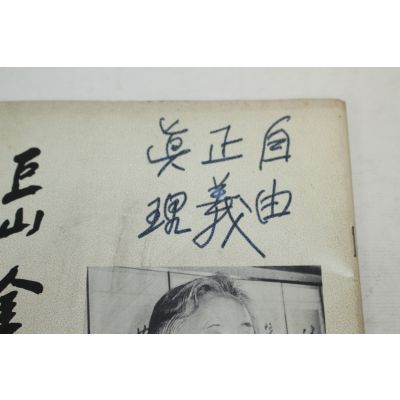 自由
正義
眞理
巨山 金